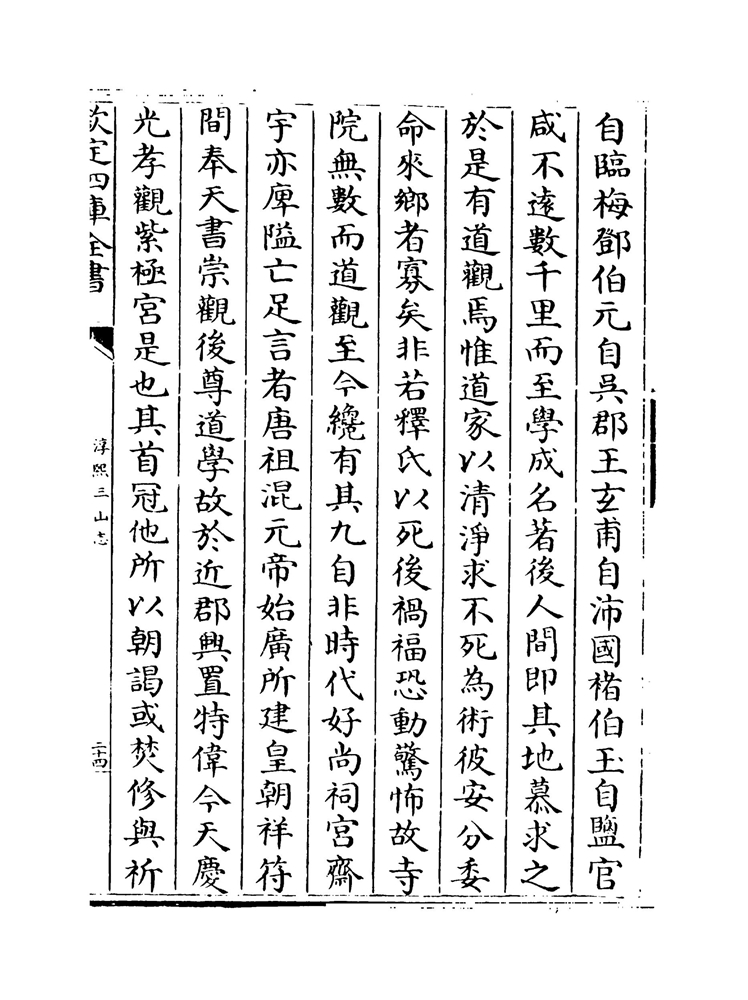 自臨梅鄧伯元自吳郡王玄甫自沛國褚伯玉自鹽官
咸不逺數千里而至學成名著後人間即其地慕求之
於是有道觀焉惟道家以清淨求不死為術彼安分委
命來鄉者寡矣非若釋氏以死後禍福恐動驚怖故寺
院無數而道觀至今纔有其九自非時代好尚祠宮齋
宇亦庳隘亡足言者唐祖混元帝始廣所建皇朝祥符
間奉天書崇觀後尊道學故於近郡興置特偉今天慶
光孝觀紫極宮是也其首冠他所以朝謁或焚修與祈
欽定四庫全書
淳熙三山志
二十四